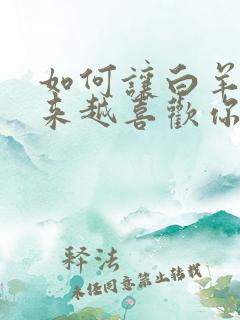 如何讓白羊
來越喜歡你
释法
未经同意禁止转载